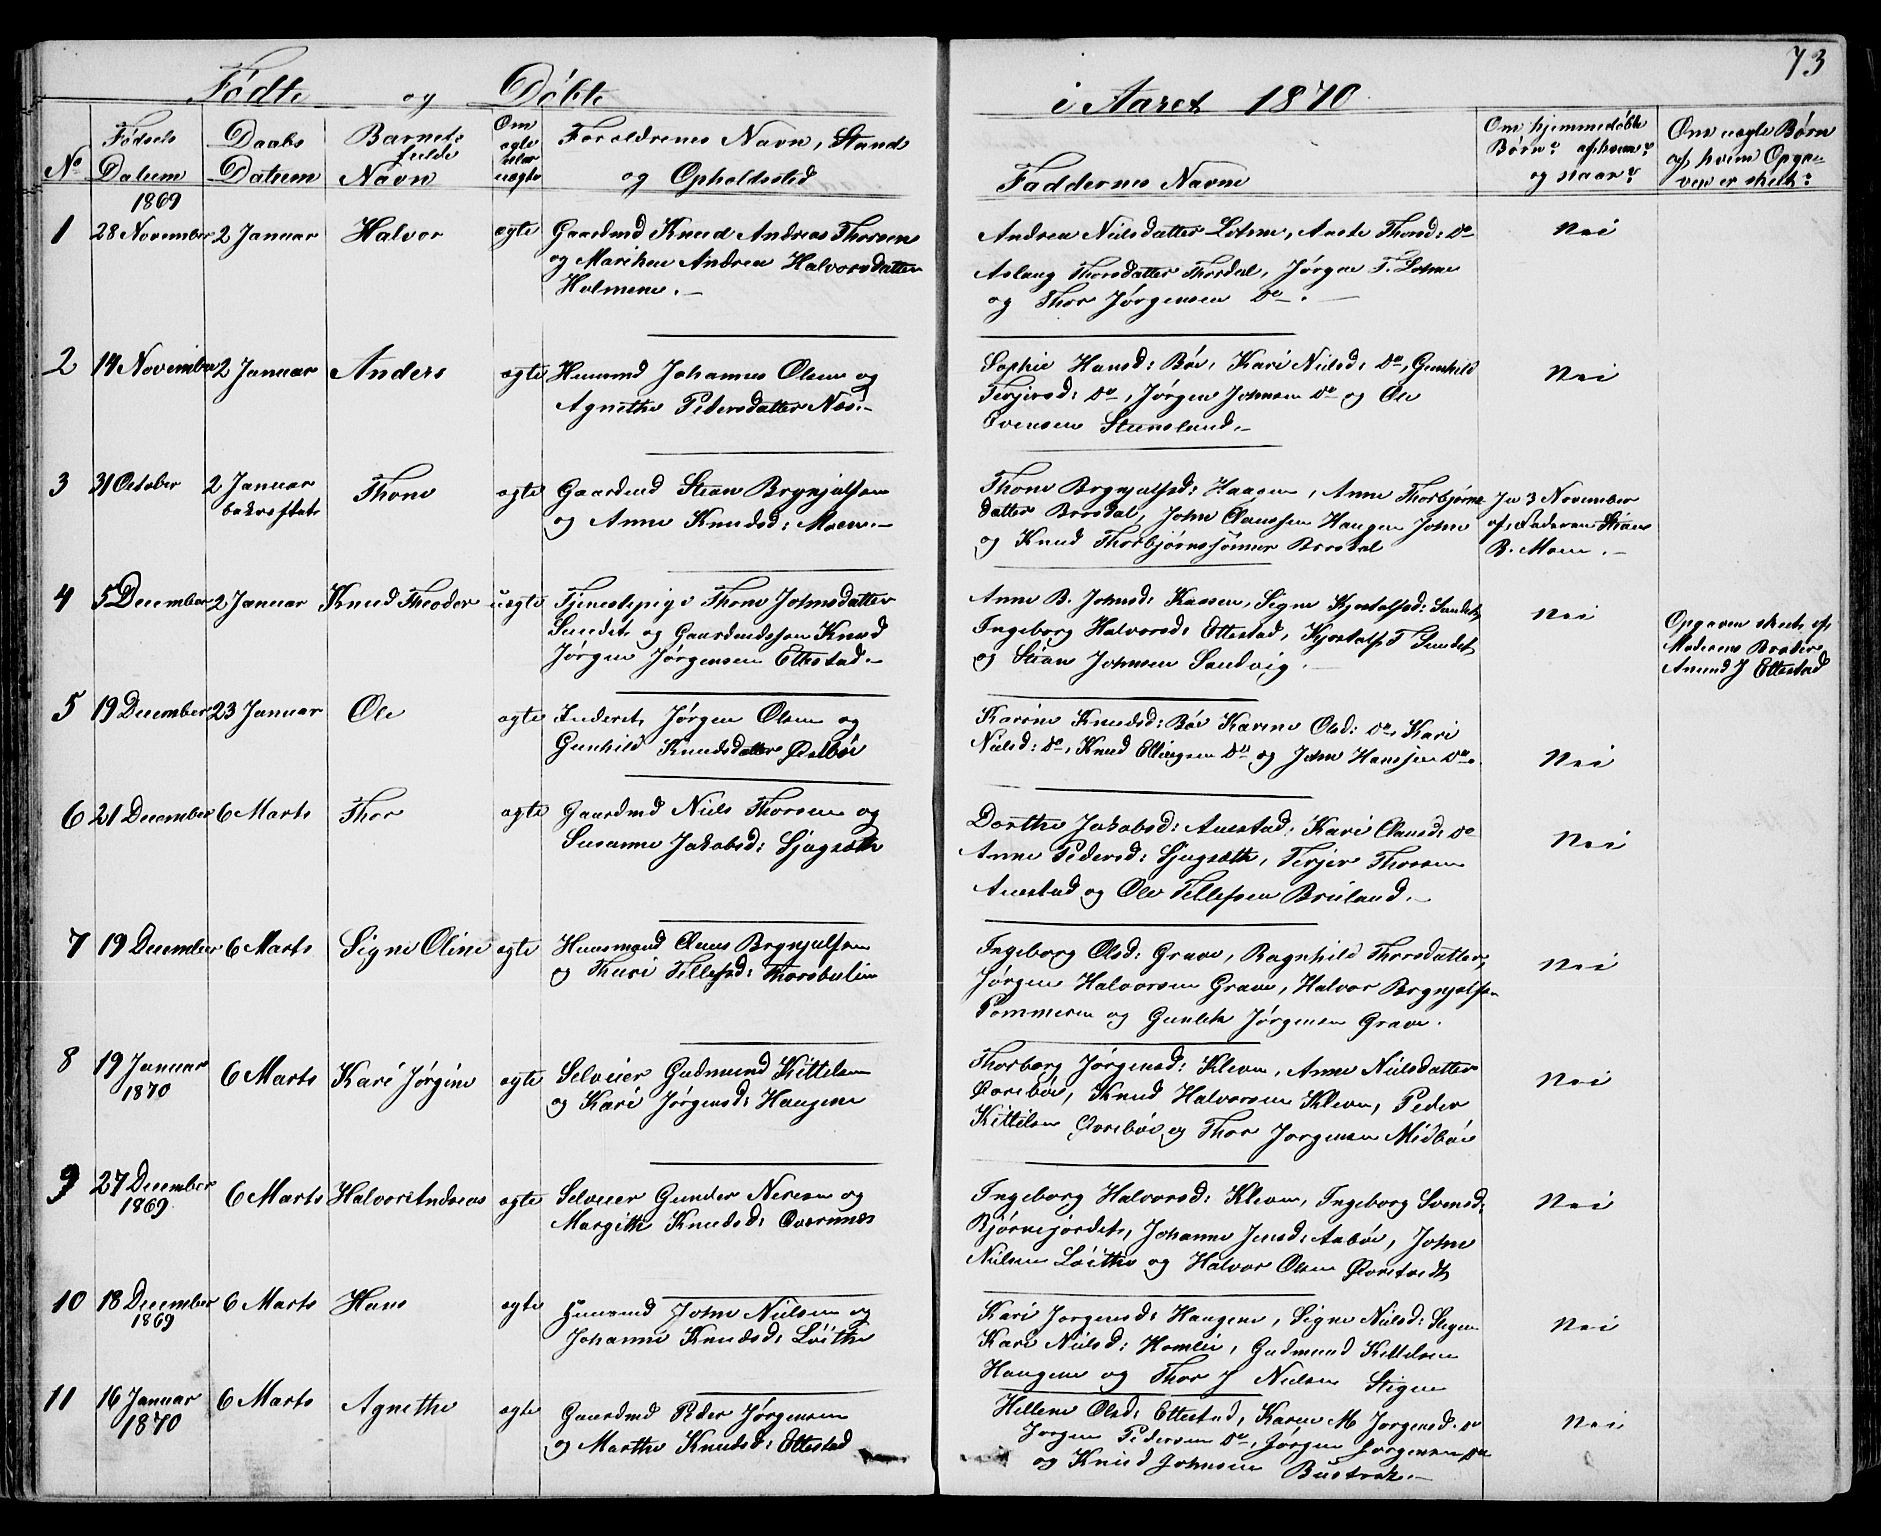 73
Fødte og Døbte i Aaret 1870
No
Fødsels Datum
Daabs Datum
Barnets fulde Navn
Om ægte eller uægte
Forældrenes Navn, Stand og Opholdssted
Faddernes Navne
Om hjemmedøbte Børn: af hvem? og naar?
Om uægte Børn af hvem Opgaven er skeet?
1869
1 28 November 2 Januar Halvor ægte
Gaardmd Knud Andreas Thorsen
og Mariken Andrea Halvorsdatter
Holmene.
Andrea Nielsdatter Lohne, Aaste Thorsd: Do
Aslaug Thorsdatter Thordal, Jørgen T. Lohne
og Thor Jørgensen Do.
Nei
2 14 November 2 Januar Anders ægte
Huusmd Johannes Olsen og
Agnethe Pedersdatter Næs.
Sophie Hansd: Bøe, Kari Nielsd: Do, Gunhild
Terjersd: Do, Jørgen Johnsen Do og Ole
Svensen Steensland.
Nei
3 31 October 2 Januar bekræftet Thone ægte
Gaardmd Stian Brynjulfsen
og Anne Knudsd: Moen.
Thone Brynjulfsd: Haagen, Anne Thorbjørns
datter Brosdal, John Claussen Haugen John
og Knud Thorbjørnssønner Brosdal
Ja 3 November
af Faderen Stian
B. Moen.
4 5 December 2 Januar Knud Theodor uægte
Tjenestepige Thone Johnsdatter
Sundet og Gaardmdssøn Knud
Jørgen Jørgensen Ettestad.
Anne B. Johnsd: Kassen, Signe Kjostolfsd: Sundet,
Ingeborg Halvorsd: Ettestad, Kjostolf T Sundet
og Stian Johnsen Sandvig.
Nei
Opgaven skeet af
Moderens Broder
Amund J Ettestad
5 19 December 23 Januar Ole ægte
Inderst Jørgen Olsen og
Gunhild Knudsdatter Østbøe
Karine Knudsd: Bøe Karene Olsd: Do, Kari
Nielsd: Do, Knud Ellingsen Do og John Hanssen Do.
Nei
6 21 December 6 Marts Thor ægte
Gaardmd Niels Thorsen og
Susanne Jakobsd: Ljugsæth
Dorthe Jakobsd: Auestad, Kari Clausd: Do
Anne Pedersd: Ljugsæth, Terjer Thorsen
Auestad og Ole Tellefsen Briland.
Nei
7 19 December 6 Marts Signe Oline ægte
Huusmand Claus Brynjulfsen
og Thuri Tellefsd: Thorsbulien
Ingeborg Olsd: Grave, Ragnhild Thorsdatter,
Jørgen Halvorsen Grave, Halvor Brynjulfsen
Pommeren og Gunlek Jørgensen Grave.
Nei
8 19 Januar 1870 6 Marts Kari Jørgine ægte
Selveier Gudmund Kittelsen
og Kari Jørgensd: Haugene
Thorborg Jørgensd: Kleven, Anne Nielsdatter
Ovrebøe, Knud Halvorsen Kleven, Peder
Kittelsen Ovrebøe og Thor Jorgensen Midbøe
Nei
9 27 December 1869 6 Marts Halvor Andreas ægte
Selveier Gunder Neresen og
Margithe Knudsd: Overnnæs
Ingeborg Halvorsd: Kleven, Ingeborg Svensd:
Bjørnejordet, Johanne Jensd: Aabøe, John
Nielsen Løithe og Halvor Olsen Øvretvedt
Nei
10 18 December 1869 6 Marts Hans ægte
Huusmd John Nielsen og
Johanne Knudsd: Løithe
Kari Jorgensd: Haugene, Signe Nielsd: Stigen
Kari Nielsd: Homlei, Gudmund Kittelsen
Haugene og Thor J Nielsen Stigen
Nei
11 16 Januar 1870 6 Marts Agnethe ægte
Gaardmd Peder Jørgensen
og Marthe Knudsd: Ettestad
Hellene Olsd: Ettestad, Karen M Jorgensd: Do
Jorgen Pedersen Do, Jørgen Jorgensen Do
og Knud Johnsen Bustrak.
Nei